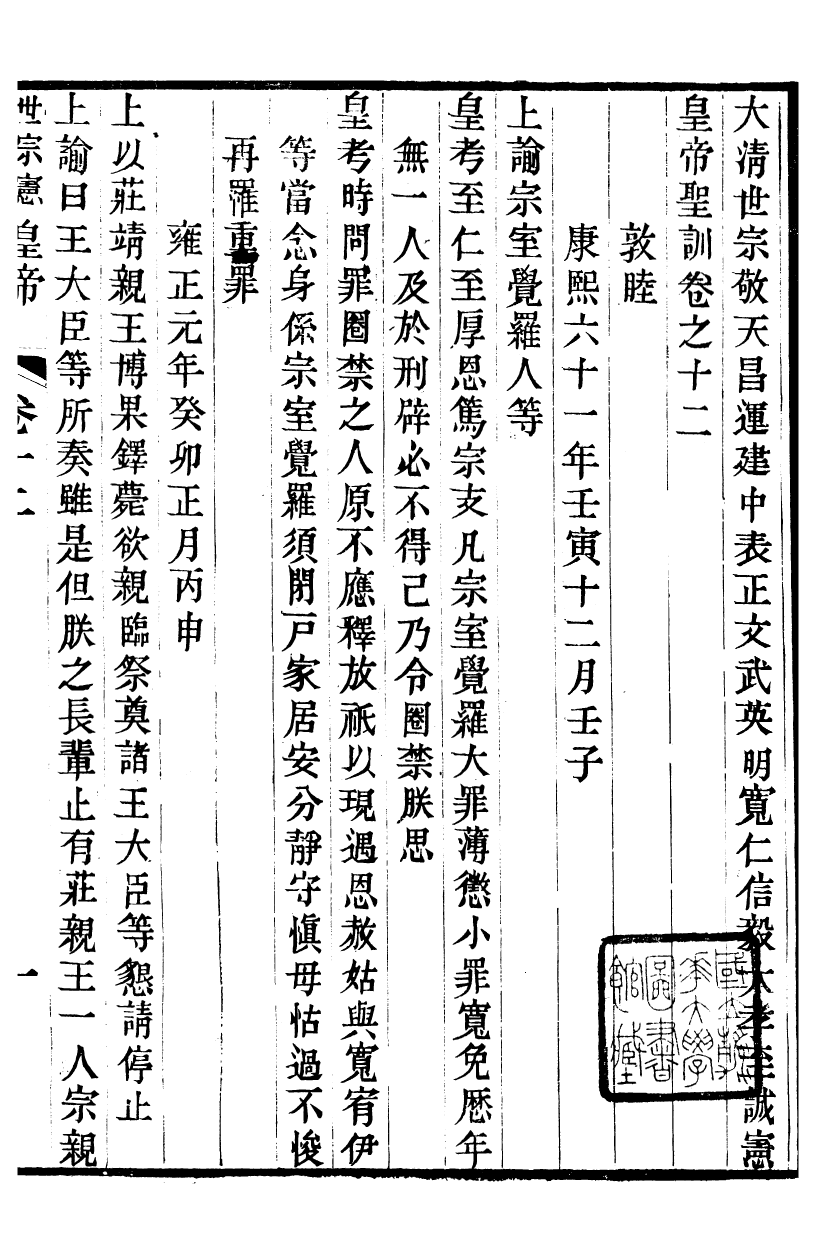 大淸世宗敬天昌運建中表正文武英明寬仁信毅大孝至誠憲
皇帝聖訓卷之十二
敦睦
康熙六十一年壬寅十二月壬子
上諭宗室覺羅人等
皇考至仁至厚恩篤宗支凡宗室覺羅大罪薄懲小罪寬免歷年
無一人及於刑辟必不得已乃令圈禁朕思
皇考時問罪圈禁之人原不應釋放祇以現遇恩赦姑與寬宥伊
等當念身係宗室覺羅須閉戸家居安分靜守愼毋怙過不悛
再罹重罪
雍正元年癸卯正月丙申
上以莊靖親王博果鐸薨欲親臨祭奠諸王大臣等懇請停止
上諭曰王大臣等所奏雖是但朕之長輩止有莊親王一人宗親
世宗憲皇帝 卷十二 一
國立靜
華大學
圖書
館藏